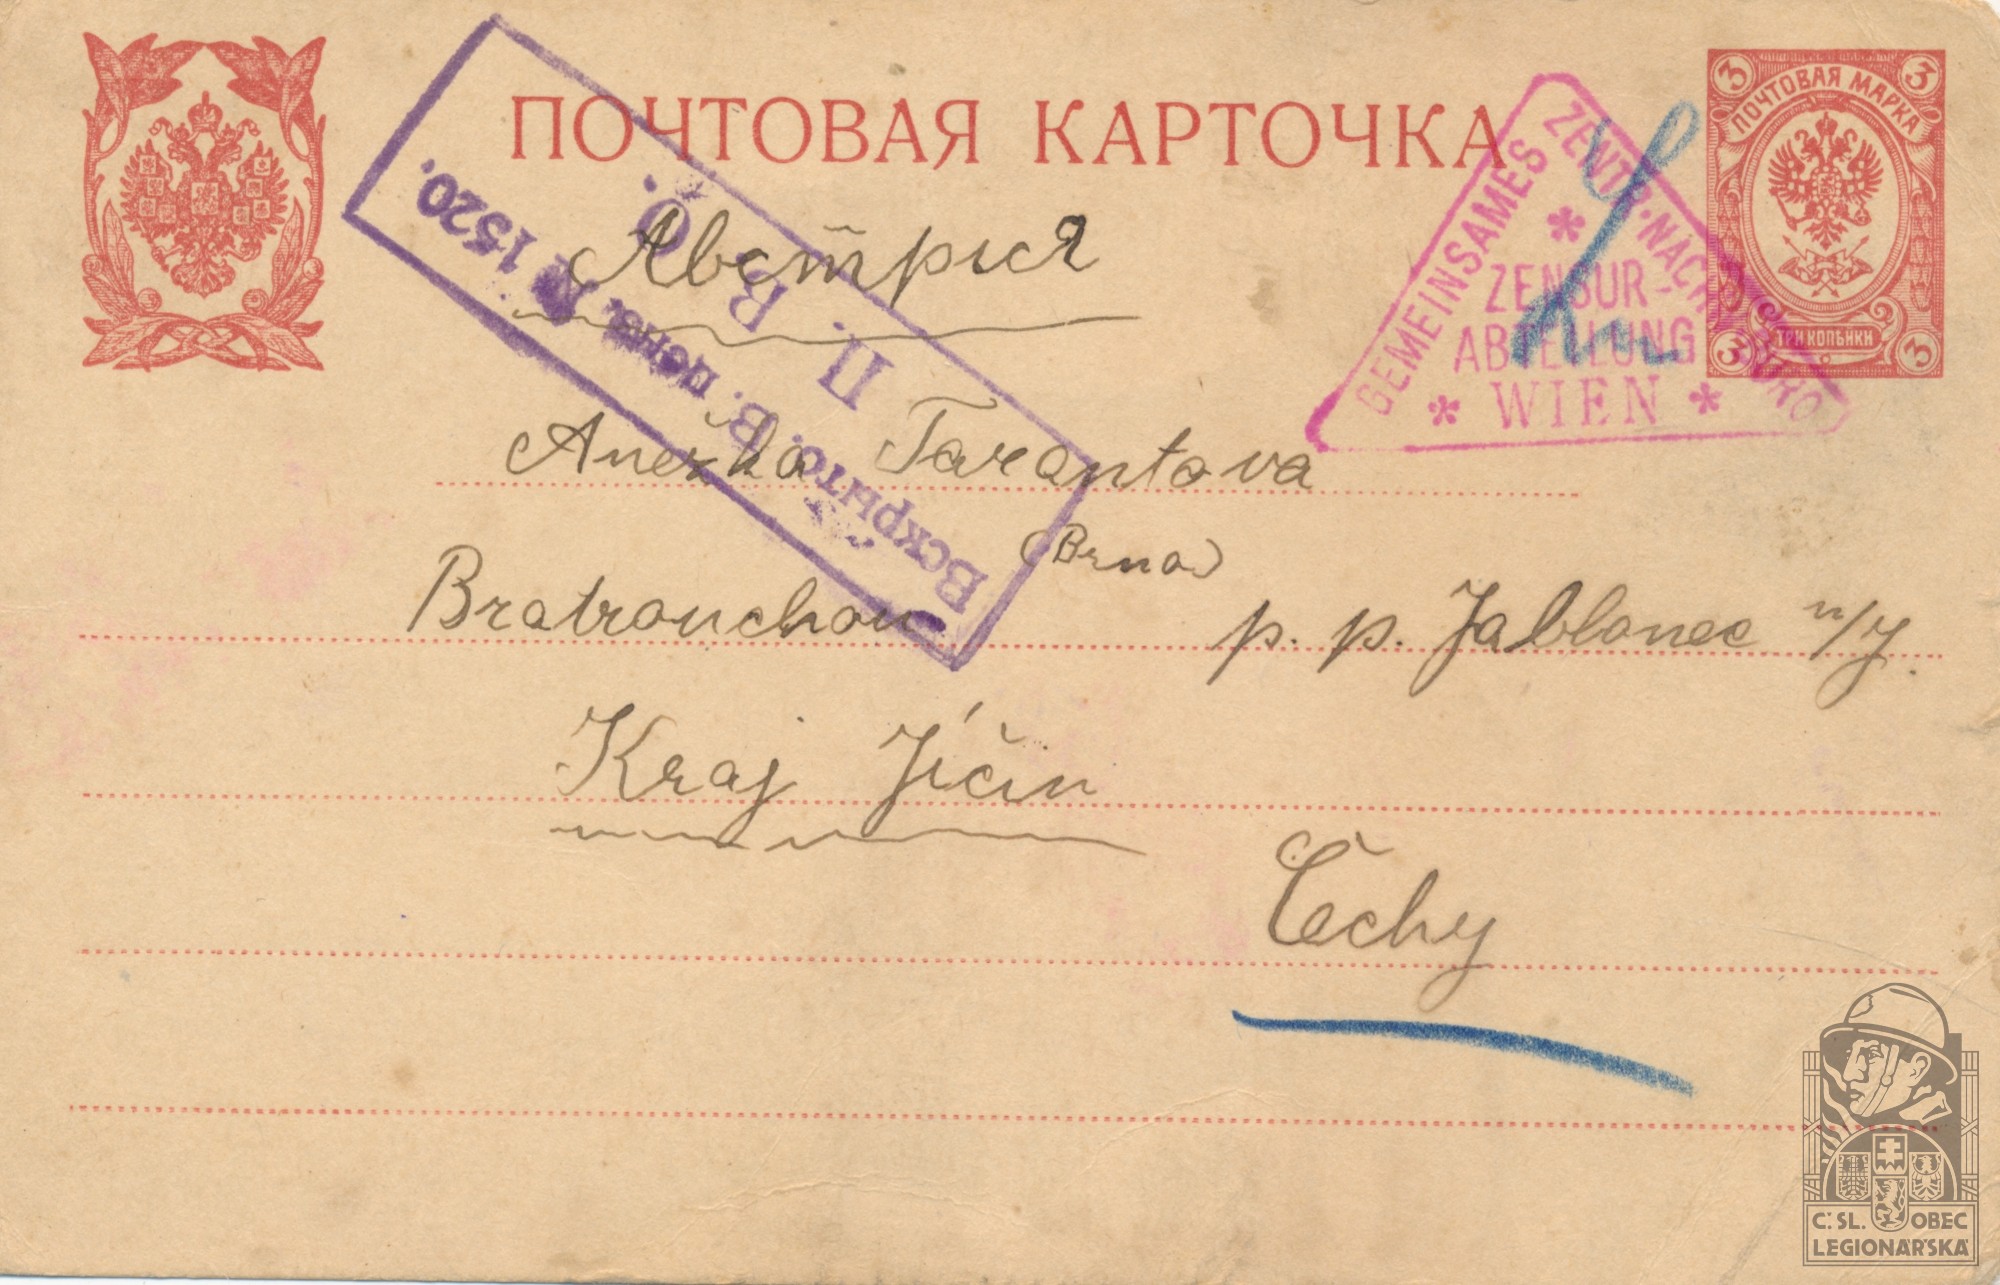 ПОЧТОВАЯ КАРТОЧКА
3 3
ПОЧТОВАЯ МАРКА
ТРИ КОПѢЙКИ
3 3
GEMEINSAMES ZENTR.-NACHW.-BURO
ZENSUR-
ABTEILUNG
WIEN
Вскрыто. В. ценз. № 1520.
П. В. О.
Австрия
Anežka Tarantova
(Brna)
Bratrouchow p. p. Jablonec n/J.
Kraj Jíčin
Čechy
Č.SL. OBEC
LEGIONÁŘSKÁ